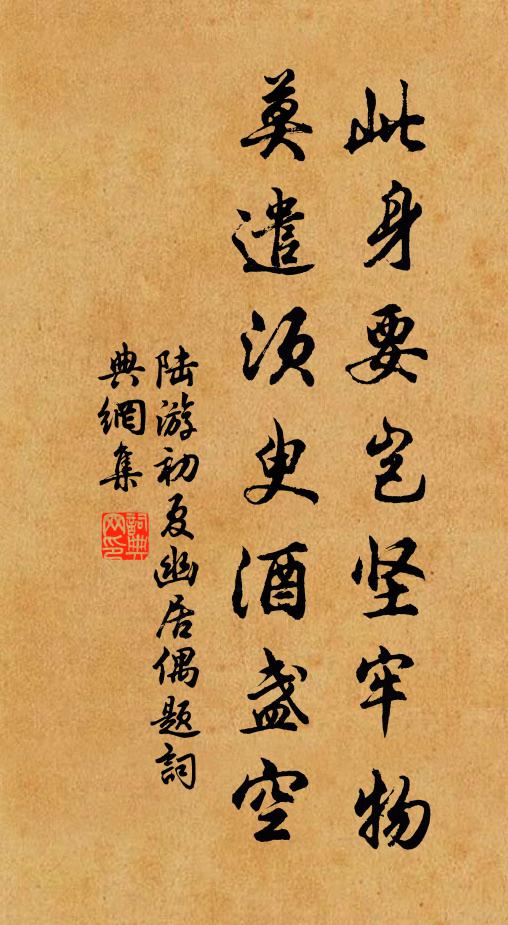 此身要岂坚牢物
莫遣须臾酒盏空
陆游初夏幽居偶题词
典網集
詞典网印